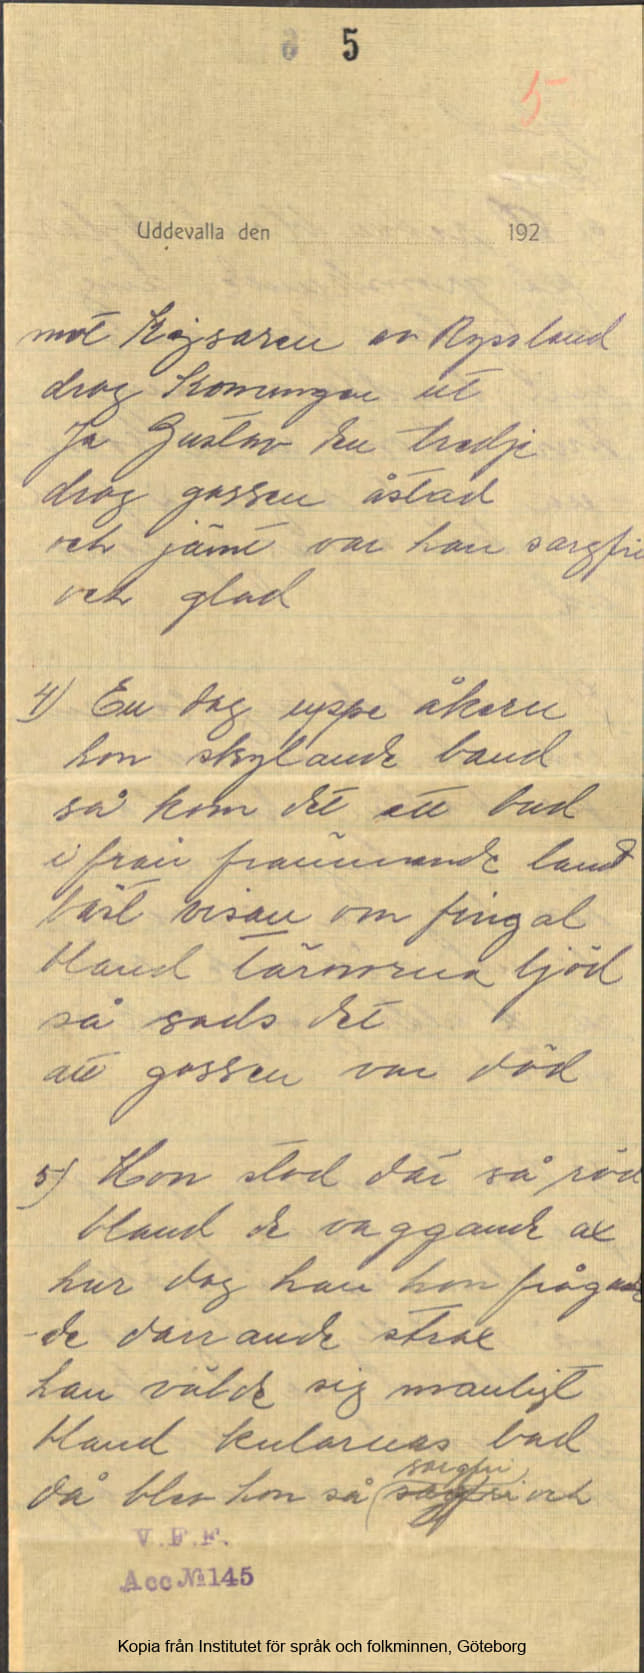 6 5
5
Uddevalla den 192
mot Kejsaren av Ryssland
drog Konungen ut
Ja Gustav den tredje
drog gossen åstad
och jämt var han sorgfri
och glad
4) En dag uppe åkern
hon skylande band
så kom det ett bud
ifrån främmande land
bäst visan om fingal
bland tärnorna ljöd
så sads det
att gossen var död
5) Hon stod där så röd
bland de vaggande ax
hur dog han hon frågande
-de darrande strax
han värde sig manligt
bland kulornas bad
då blev hon så (sorgfri och
V.F.F.
Acc № 145
Kopia från Institutet för språk och folkminnen, Göteborg